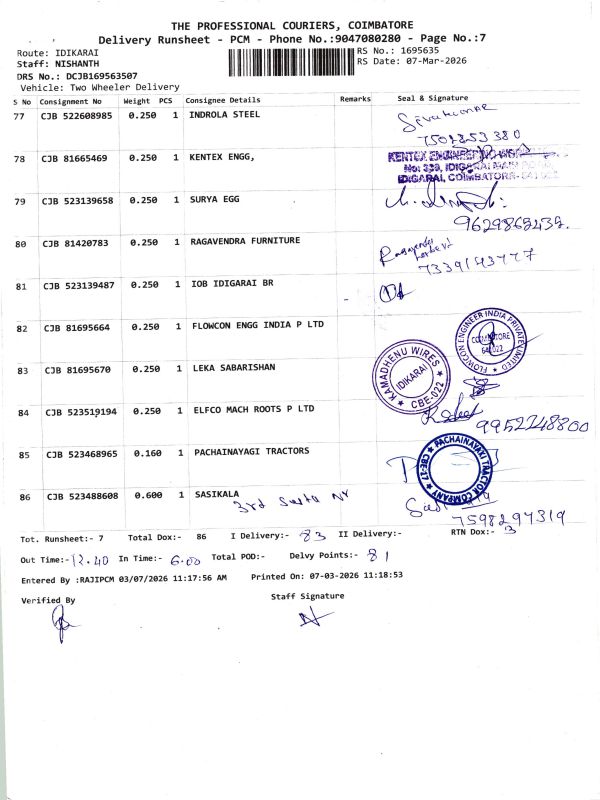 THE PROFESSIONAL COURIERS, COIMBATORE
Delivery Runsheet - PCM - Phone No.:9047080280 - Page No.:7
Route: IDIKARAI
RS No.: 1695635
Staff: NISHANTH
RS Date: 07-Mar-2026
DRS No.: DCJB169563507
Vehicle: Two Wheeler Delivery
S No Consignment No Weight PCS Consignee Details Remarks Seal & Signature
77 CJB 522608985 0.250 1 INDROLA STEEL
Sivakumar
7502853380
78 CJB 81665469 0.250 1 KENTEX ENGG,
KENTEX ENGINEERING
No: 339, IDIGARAI MAIN ROAD,
IDIGARAI, COIMBATORE- 641 022
79 CJB 523139658 0.250 1 SURYA EGG
9629865435.
80 CJB 81420783 0.250 1 RAGAVENDRA FURNITURE
Ragavender
7339193777
81 CJB 523139487 0.250 1 IOB IDIGARAI BR
82 CJB 81695664 0.250 1 FLOWCON ENGG INDIA P LTD
FLOWCON ENGINEER INDIA PRIVATE LIMITED
COIMBATORE
641022
83 CJB 81695670 0.250 1 LEKA SABARISHAN
KAMADHENU WIRES
IDIKARAI
CBE-022
84 CJB 523519194 0.250 1 ELFCO MACH ROOTS P LTD
9952248800
85 CJB 523468965 0.160 1 PACHAINAYAGI TRACTORS
PACHAINAYAKI TRACTOR COMPANY
CBE-17
86 CJB 523488608 0.600 1 SASIKALA
3rd
7598297319
Tot. Runsheet:- 7 Total Dox:- 86 I Delivery:- 83 II Delivery:- RTN Dox:- 3
Out Time:- 12.40 In Time:- 6.00 Total POD:- Delvy Points:- 81
Entered By :RAJIPCM 03/07/2026 11:17:56 AM Printed On: 07-03-2026 11:18:53
Verified By
Staff Signature